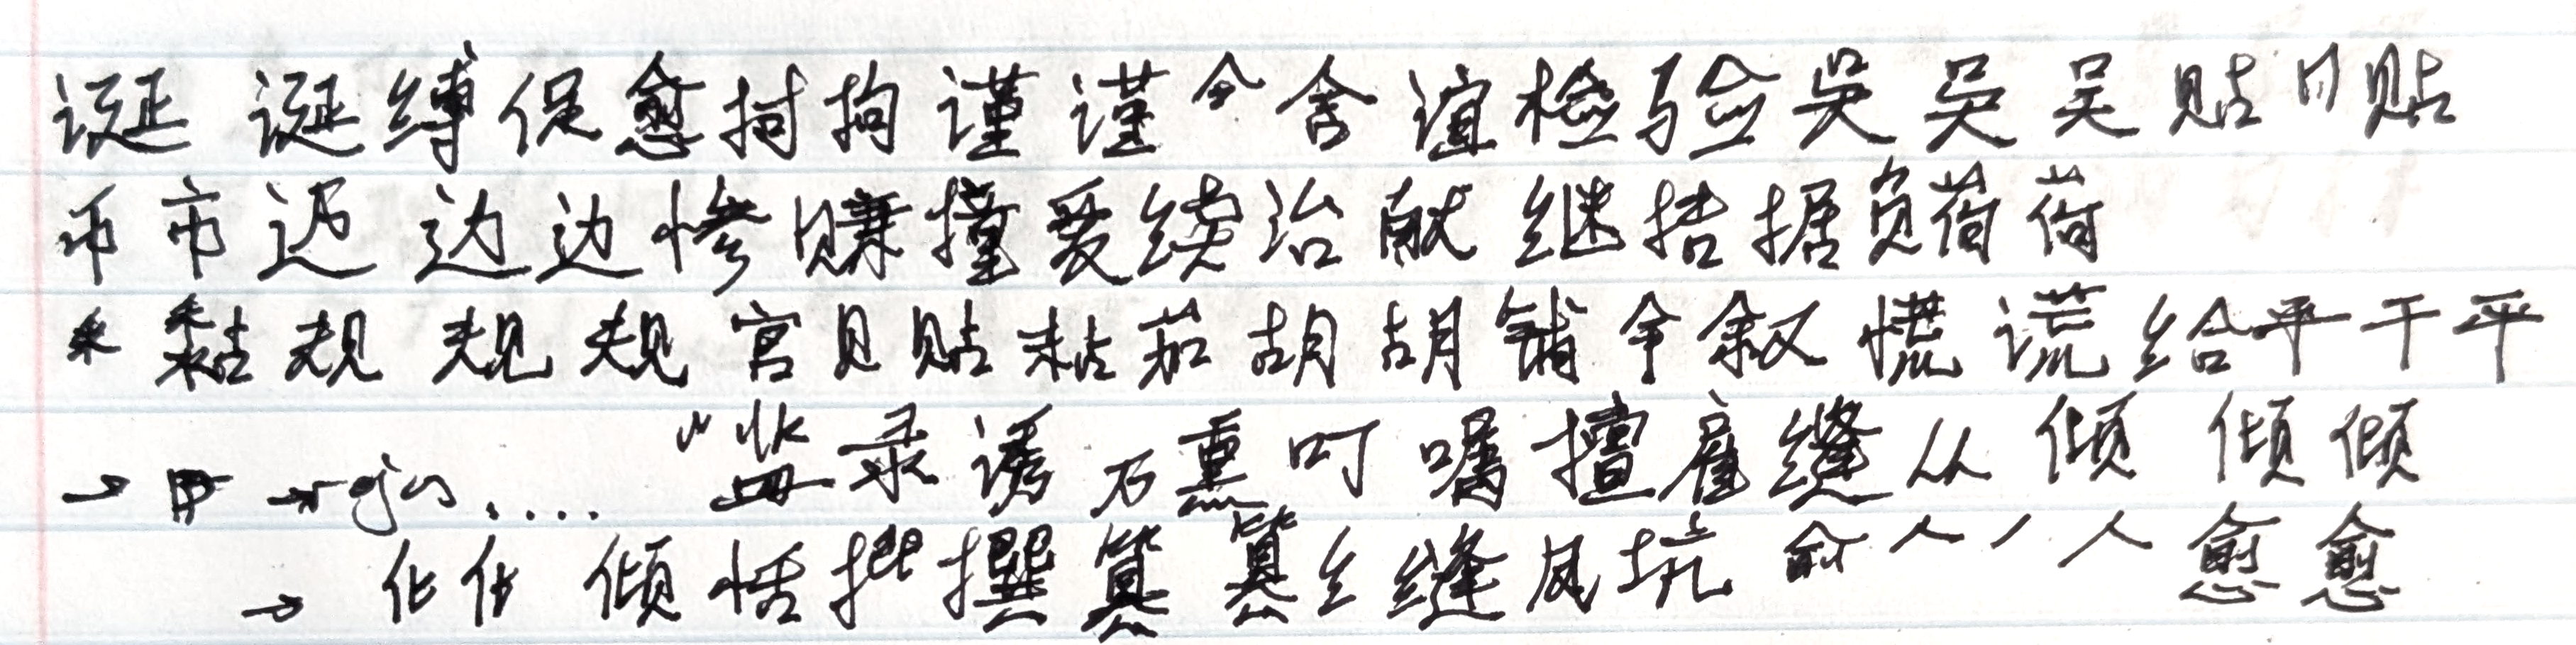 诞诞缚促愈拘拘谨谨令舍谊检验吴吴吴贴贴
币市迈边边惨赚撞爱续治献继拮据负荷荷
黏规规规宫见贴粘茄胡胡铺伞叙慌谎给平干平
监录诱石熏叮嘱擅雇缝从倾倾倾
化化倾恬撰篡篡纟缝凤坑俞人人愈愈